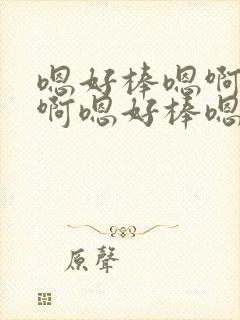 嗯好棒嗯啊
啊嗯好棒嗯
原聲